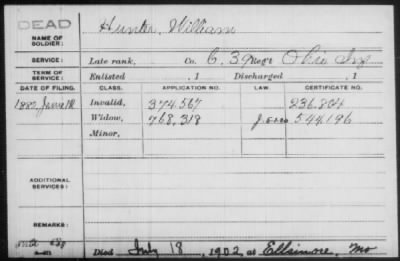 DEAD
Hunter, William
NAME OF SOLDIER:
SERVICE: Late rank, Co. C. 39 Reg't Ohio Inf
TERM OF SERVICE: Enlisted , 1 Discharged , 1
DATE OF FILING. CLASS. APPLICATION NO. LAW. CERTIFICATE NO.
1882, Invalid, 374.567 236.804
Widow, 768,318 544.196
Minor,
ADDITIONAL SERVICES:
REMARKS:
Died July 18, 1902, at Ellsinore, Mo